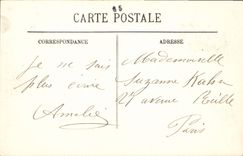 85
CARTE POSTALE
CORRESPONDANCE
ADRESSE
Je ne sais
plus écrire
Amelie
Mademoiselle
Suzanne Kahn
29 avenue Reille
Paris